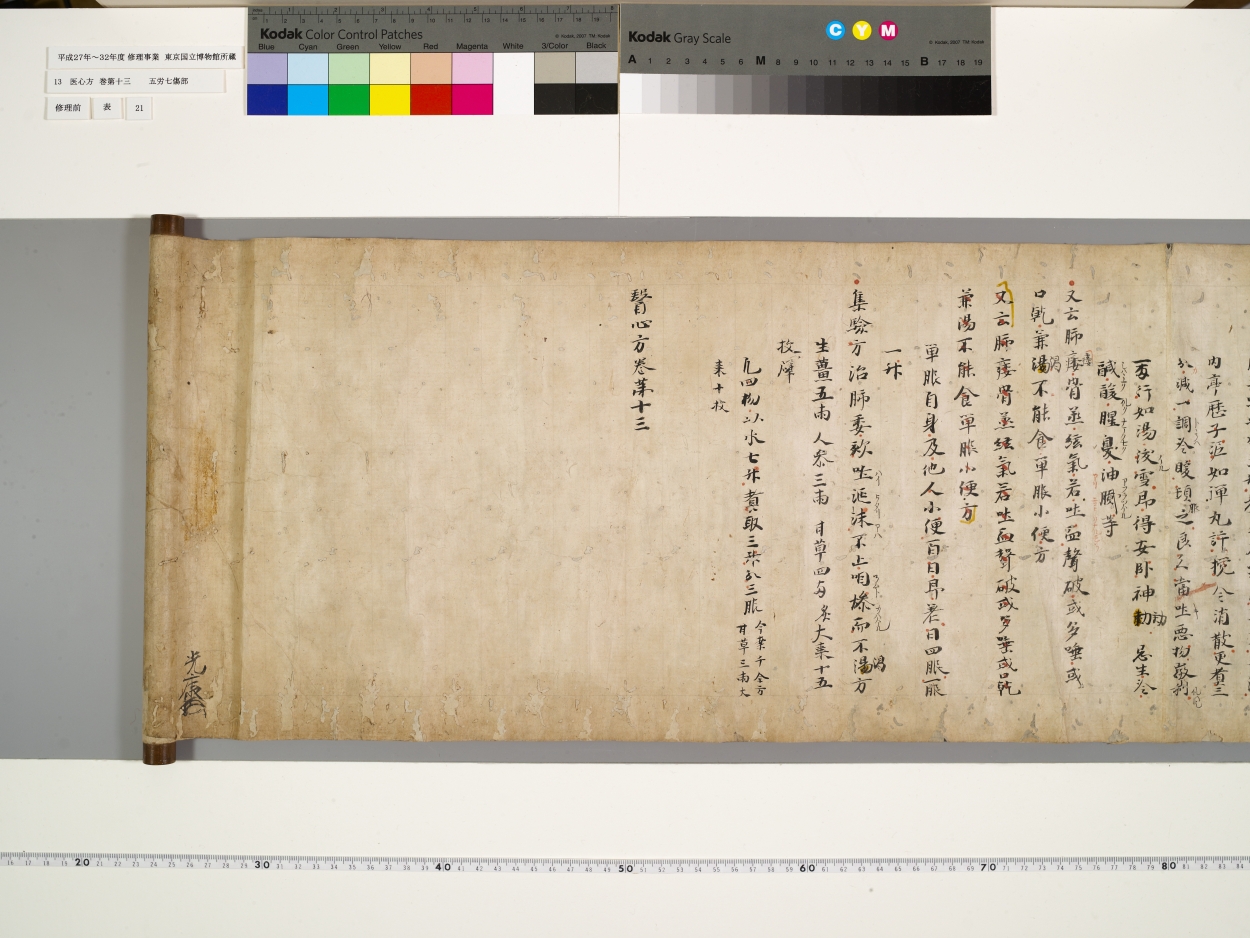 平成27年～32年度 修理事業 東京国立博物館所蔵
13 医心方 巻第十三 五労七傷部
修理前 表 21
Kodak Color Control Patches
Blue Cyan Green Yellow Red Magenta White 3/Color Black
Kodak Gray Scale
C Y M
A 1 2 3 4 5 6 M 8 9 10 11 12 13 14 15 B 17 18 19
内葶藶子泥如弾丸計攪令消散更着三
分減一調冷暖頓之良久當吐悪物
行如湯後雪即得安臥神 忌生冷
鹹酸腥臊油膩等
又云肺痿骨蒸絃氣若吐血聲破或多唾或
口乾兼渇不能食単服小便方
又云肺痿骨蒸絃氣若吐血聲破或多唾或口乾
兼渇不能食単服小便方
単服自身及他人小便百日旦暮日四服一服
一升
集験方治肺痿欬吐涎沫不止咽燥而不渇方
生薑五両 人参三両 甘草四両炙 大棗十五
枚擘
凡四物以水七升煮取三升分三服 今案千金方
甘草三両大
棗十枚
醫心方巻第十三
20 30 40 50 60 70 80